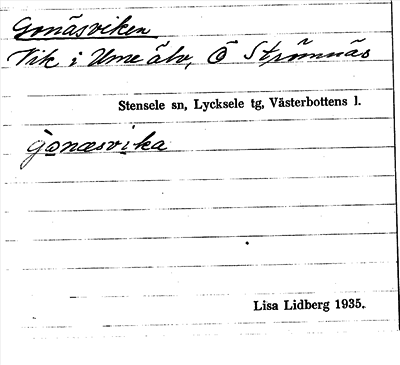 Gonäsviken
Vik i Ume älv, Ö Strömnäs
Stensele sn, Lycksele tg, Västerbottens l.
gonæsvika
Lisa Lidberg 1935.